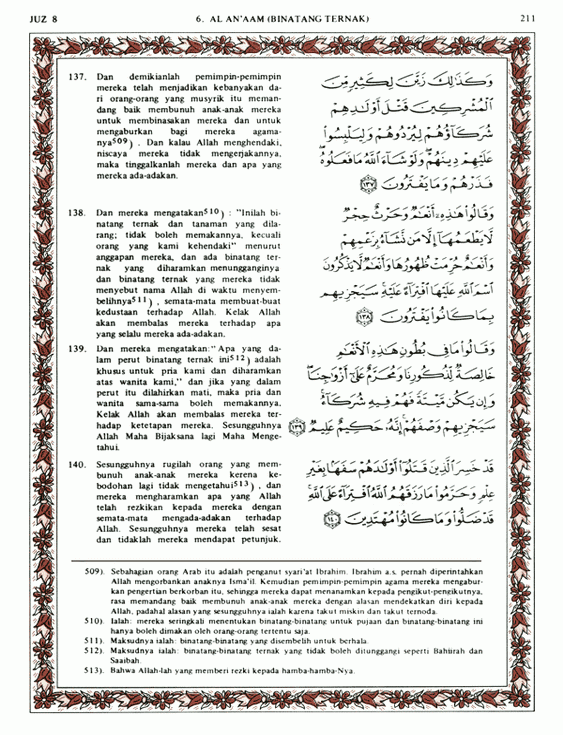 JUZ 8
6. AL AN'AAM (BINATANG TERNAK)
211
137. Dan demikianlah pemimpin-pemimpin
mereka telah menjadikan kebanyakan da-
ri orang-orang yang musyrik itu meman-
dang baik membunuh anak-anak mereka
untuk membinasakan mereka dan untuk
mengaburkan bagi mereka agama-
nya509) . Dan kalau Allah menghendaki,
niscaya mereka tidak mengerjakannya,
maka tinggalkanlah mereka dan apa yang
mereka ada-adakan.
وَكَذَٰلِكَ زَيَّنَ لِكَثِيرٍ مِّنَ
الْمُشْرِكِينَ قَتْلَ أَوْلَادِهِمْ
شُرَكَاؤُهُمْ لِيُرْدُوهُمْ وَلِيَلْبِسُوا
عَلَيْهِمْ دِينَهُمْ وَلَوْ شَاءَ اللَّهُ مَا فَعَلُوهُ
فَذَرْهُمْ وَمَا يَفْتَرُونَ ١٣٧
138. Dan mereka mengatakan510) : "Inilah bi-
natang ternak dan tanaman yang dila-
rang; tidak boleh memakannya, kecuali
orang yang kami kehendaki" menurut
anggapan mereka, dan ada binatang ter-
nak yang diharamkan menungganginya
dan binatang ternak yang mereka tidak
menyebut nama Allah di waktu menyem-
belihnya511) , semata-mata membuat-buat
kedustaan terhadap Allah. Kelak Allah
akan membalas mereka terhadap apa
yang selalu mereka ada-adakan.
وَقَالُوا هَٰذِهِ أَنْعَامٌ وَحَرْثٌ حِجْرٌ
لَّا يَطْعَمُهَا إِلَّا مَن نَّشَاءُ بِزَعْمِهِمْ
وَأَنْعَامٌ حُرِّمَتْ ظُهُورُهَا وَأَنْعَامٌ لَّا يَذْكُرُونَ
اسْمَ اللَّهِ عَلَيْهَا افْتِرَاءً عَلَيْهِ سَيَجْزِيهِم
بِمَا كَانُوا يَفْتَرُونَ ١٣٨
139. Dan mereka mengatakan:" Apa yang da-
lam perut binatang ternak ini512) adalah
khusus untuk pria kami dan diharamkan
atas wanita kami," dan jika yang dalam
perut itu dilahirkan mati, maka pria dan
wanita sama-sama boleh memakannya.
Kelak Allah akan membalas mereka ter-
hadap ketetapan mereka. Sesungguhnya
Allah Maha Bijaksana lagi Maha Menge-
tahui.
وَقَالُوا مَا فِي بُطُونِ هَٰذِهِ الْأَنْعَامِ
خَالِصَةٌ لِّذُكُورِنَا وَمُحَرَّمٌ عَلَىٰ أَزْوَاجِنَا
وَإِن يَكُن مَّيْتَةً فَهُمْ فِيهِ شُرَكَاءُ
سَيَجْزِيهِمْ وَصْفَهُمْ إِنَّهُ حَكِيمٌ عَلِيمٌ ١٣٩
140. Sesungguhnya rugilah orang yang mem-
bunuh anak-anak mereka kerena ke-
bodohan lagi tidak mengetahui513) , dan
mereka mengharamkan apa yang Allah
telah rezkikan kepada mereka dengan
semata-mata mengada-adakan terhadap
Allah. Sesungguhnya mereka telah sesat
dan tidaklah mereka mendapat petunjuk.
قَدْ خَسِرَ الَّذِينَ قَتَلُوا أَوْلَادَهُمْ سَفَهًا بِغَيْرِ
عِلْمٍ وَحَرَّمُوا مَا رَزَقَهُمُ اللَّهُ افْتِرَاءً عَلَى اللَّهِ
قَدْ ضَلُّوا وَمَا كَانُوا مُهْتَدِينَ ١٤٠
509). Sebahagian orang Arab itu adalah penganut syari'at Ibrahim. Ibrahim a.s. pernah diperintahkan
Allah mengorbankan anaknya Isma'il. Kemudian pemimpin-pemimpin agama mereka mengabur-
kan pengertian berkorban itu, sehingga mereka dapat menanamkan kepada pengikut-pengikutnya,
rasa memandang baik membunuh anak-anak mereka dengan alasan mendekatkan diri kepada
Allah, padahal alasan yang sesungguhnya ialah karena takut miskin dan takut ternoda.
510). Ialah: mereka seringkali menentukan binatang-binatang untuk pujaan dan binatang-binatang ini
hanya boleh dimakan oleh orang-orang tertentu saja.
511). Maksudnya ialah: binatang-binatang yang disembelih untuk berhala.
512). Maksudnya ialah: binatang-binatang ternak yang tidak boleh ditunggangi seperti Bahiirah dan
Saaibah.
513). Bahwa Allah-lah yang memberi rezki kepada hamba-hamba-Nya.